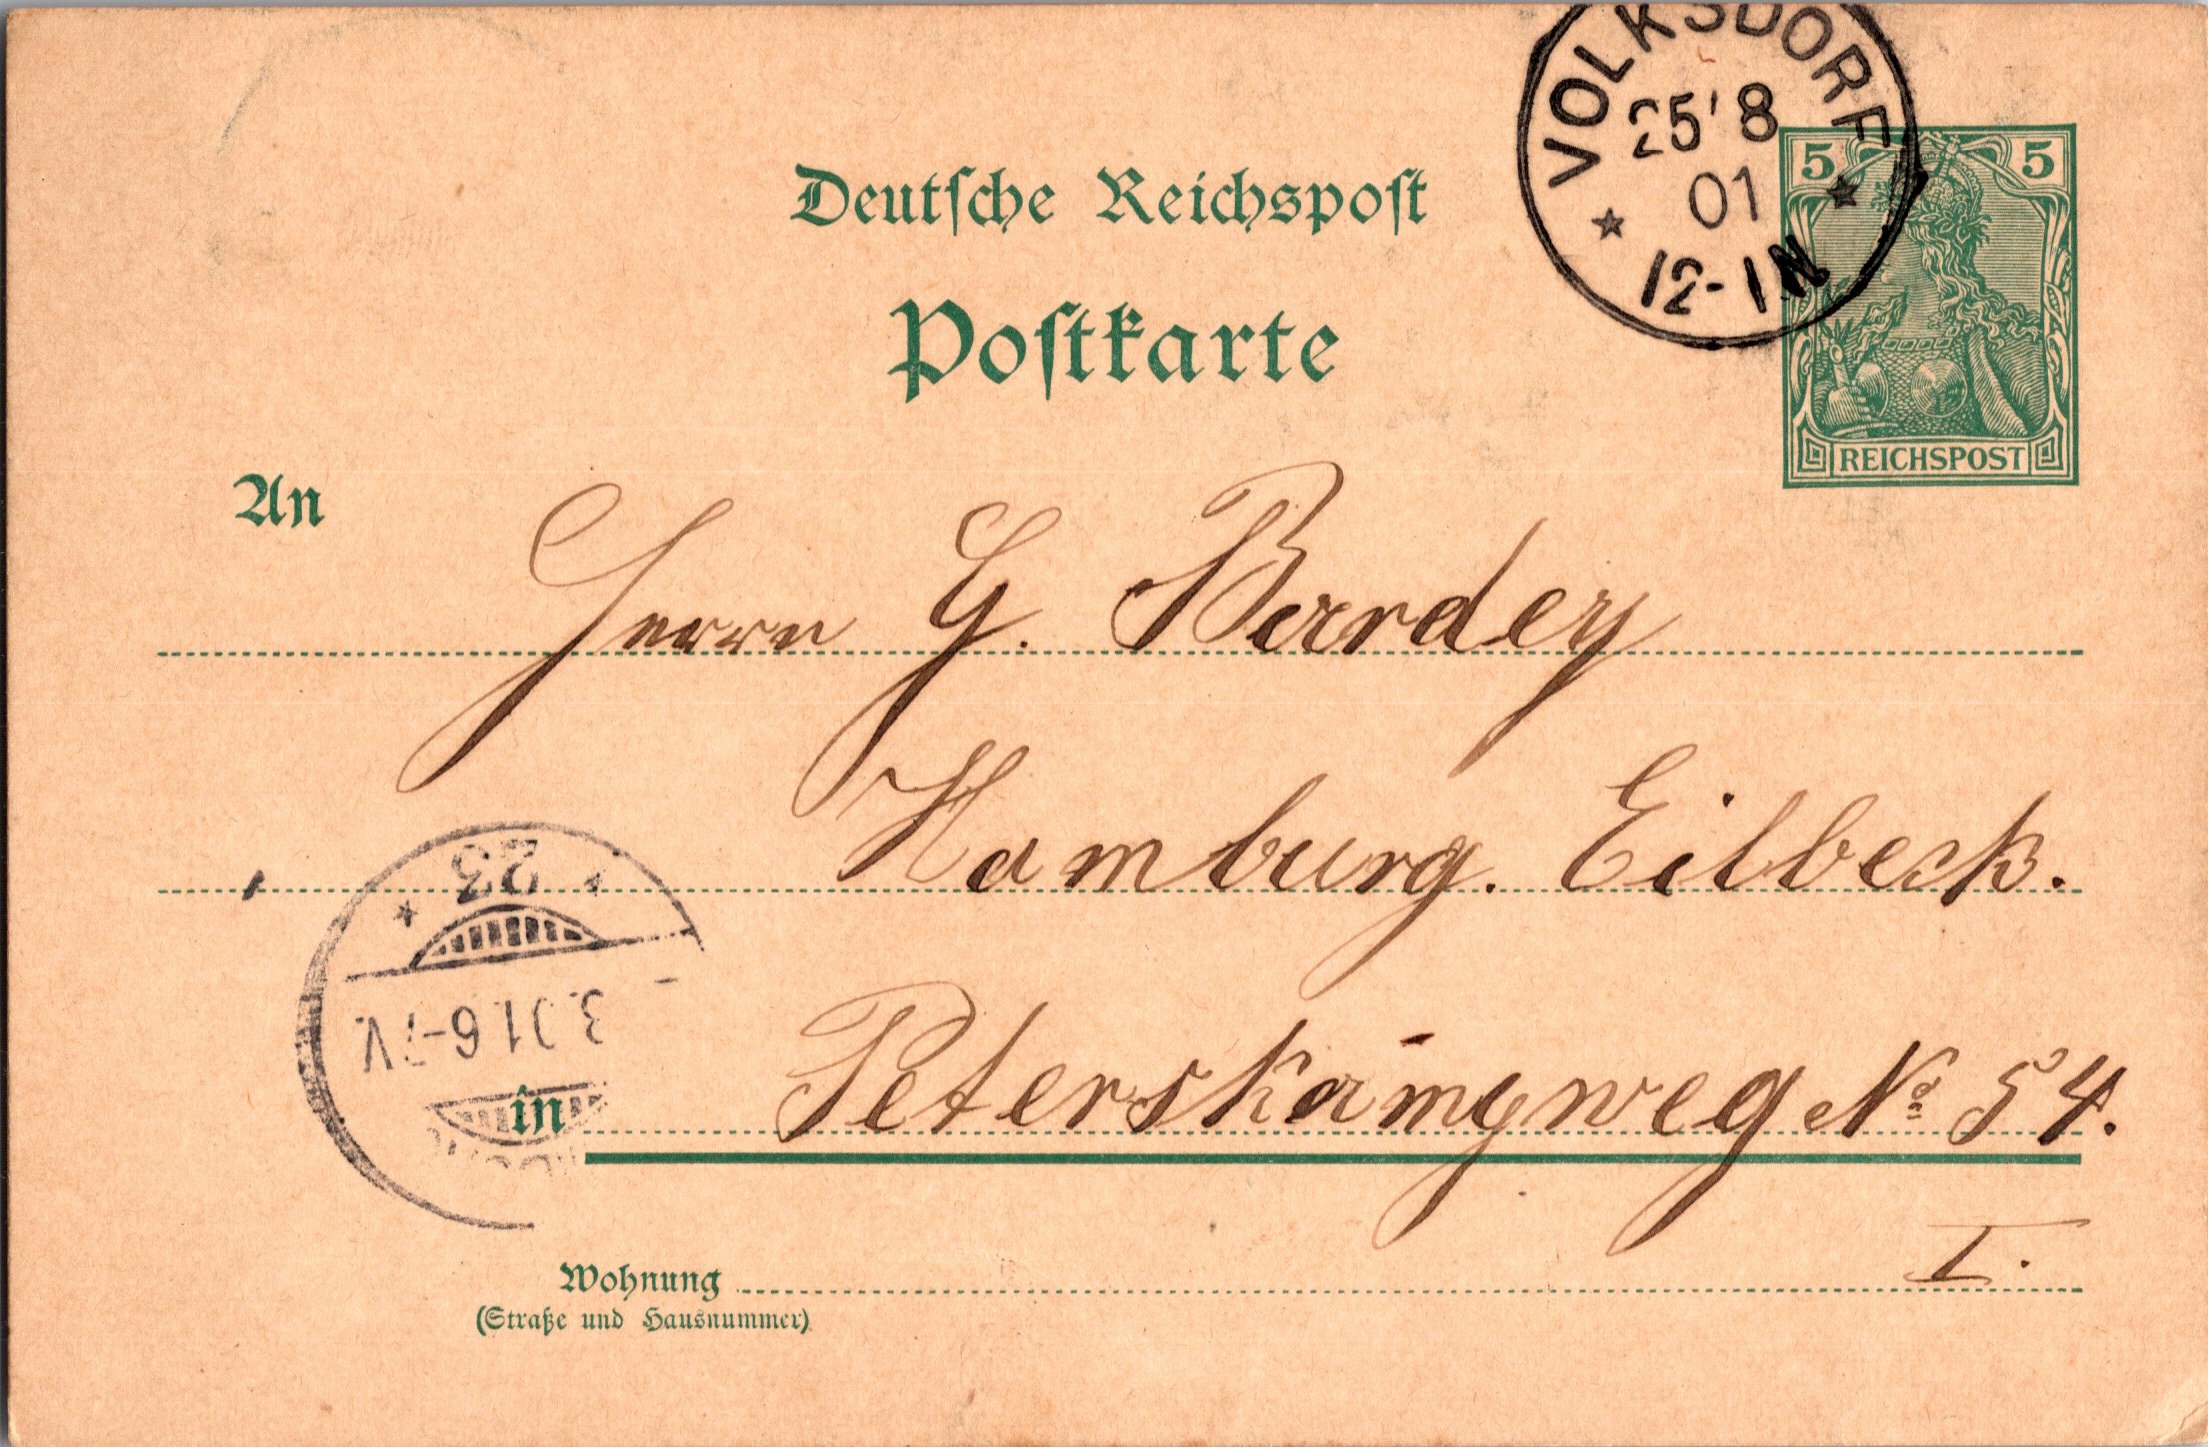 VOLKSDORF
25 8
01
12-1N
5 5
REICHSPOST
Deutsche Reichspost
Postkarte
An
Herrn G. Berrdey
Hamburg. Eilbeck.
23
3.01 6-7V.
in Peterskampweg No 54.
I.
Wohnung
(Straße und Hausnummer)